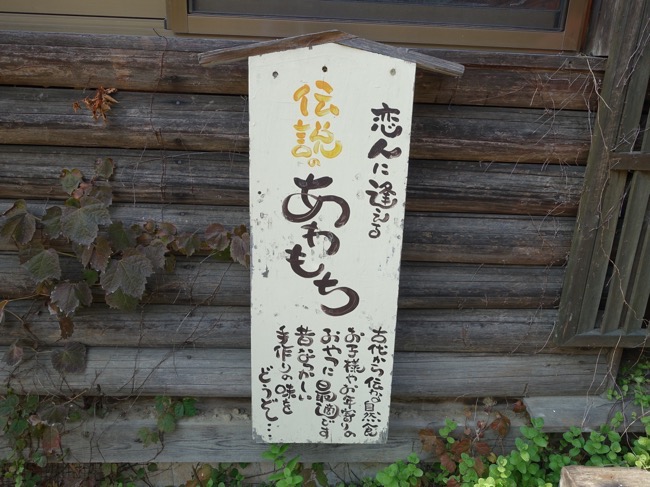 恋人に逢える
伝説の
あわもち
古代から伝わる自然食
お子様やお年寄りの
おやつに最適です
昔なつかしい
手作りの味を
どうぞ…